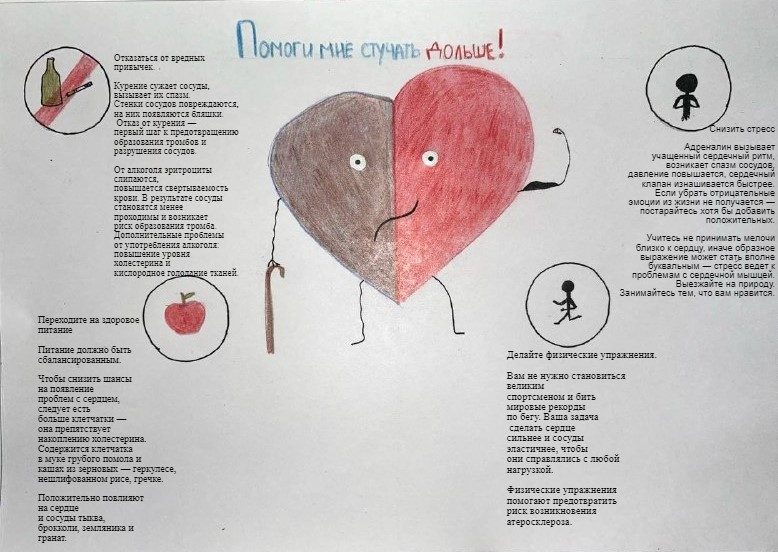 Помоги мне стучать дольше!
Отказаться от вредных
привычек.
Курение сужает сосуды,
вызывает их спазм.
Стенки сосудов повреждаются,
на них появляются бляшки.
Отказ от курения —
первый шаг к предотвращению
образования тромбов и
разрушения сосудов.
От алкоголя эритроциты
слипаются,
повышается свертываемость
крови. В результате сосуды
становятся менее
проходимы и возникает
риск образования тромба.
Дополнительные проблемы
от употребления алкоголя:
повышение уровня
холестерина и
кислородное голодание тканей.
Переходите на здоровое
питание
Питание должно быть
сбалансированным.
Чтобы снизить шансы
на появление
проблем с сердцем,
следует есть
больше клетчатки —
она препятствует
накоплению холестерина.
Содержится клетчатка
в муке грубого помола и
кашах из зерновых — геркулесе,
нешлифованном рисе, гречке.
Положительно повлияют
на сердце
и сосуды тыква,
брокколи, земляника и
гранат.
Снизить стресс
Адреналин вызывает
учащенный сердечный ритм,
возникает спазм сосудов,
давление повышается, сердечный
клапан изнашивается быстрее.
Если убрать отрицательные
эмоции из жизни не получается —
постарайтесь хотя бы добавить
положительных.
Учитесь не принимать мелочи
близко к сердцу, иначе образное
выражение может стать вполне
буквальным — стресс ведет к
проблемам с сердечной мышцей.
Выезжайте на природу.
Занимайтесь тем, что вам нравится.
Делайте физические упражнения.
Вам не нужно становиться
великим
спортсменом и бить
мировые рекорды
по бегу. Ваша задача
сделать сердце
сильнее и сосуды
эластичнее, чтобы
они справлялись с любой
нагрузкой.
Физические упражнения
помогают предотвратить
риск возникновения
атеросклероза.